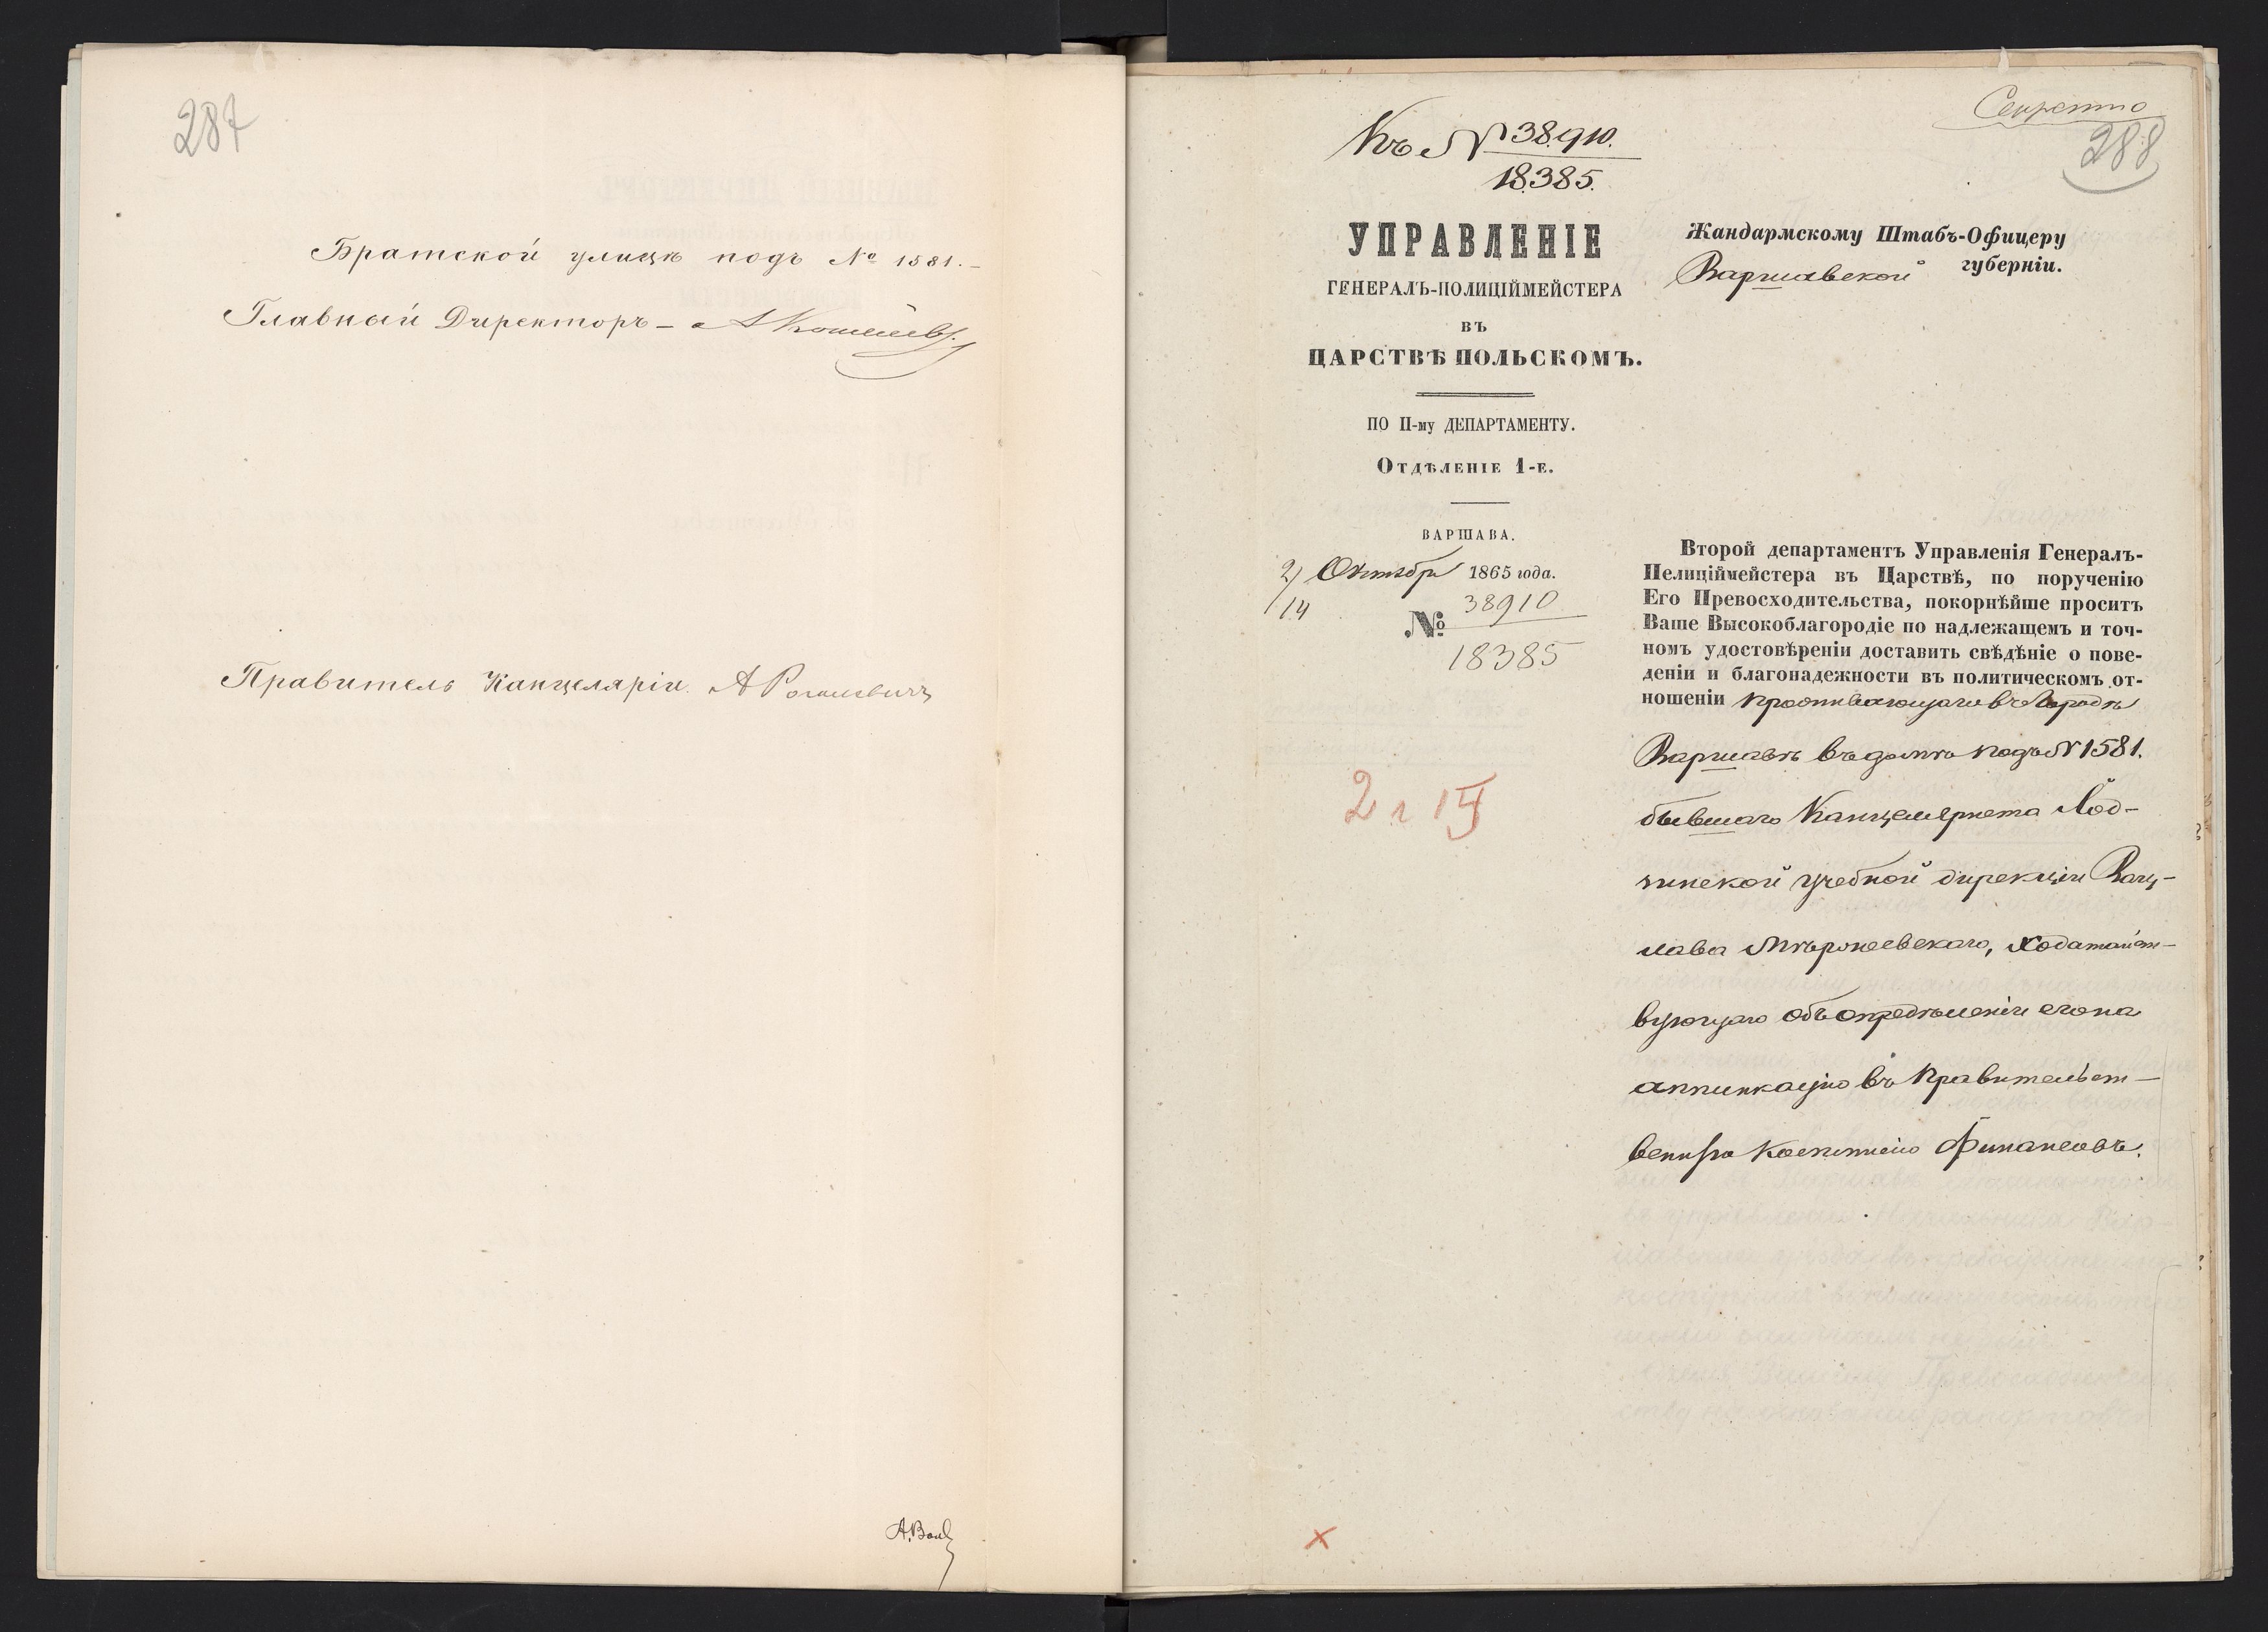 287
Братской улицѣ подъ № 1581.–
Главный Директоръ – А Кошелевъ.
Правитель Канцеляріи.
Секретно
288
Къ № 38.910.
18.385.
УПРАВЛЕНІЕ
ГЕНЕРАЛЪ-ПОЛИЦІЙМЕЙСТЕРА
ВЪ
ЦАРСТВѢ ПОЛЬСКОМЪ.
ПО II-му ДЕПАРТАМЕНТУ.
Отдѣленіе 1-е.
ВАРШАВА.
2/14 Октября 1865 года.
№ 38910
18385
2 и 15
Жандармскому Штабъ-Офицеру
Варшавской губерніи.
Второй департаментъ Управленія Генералъ-
Пелиціймейстера въ Царствѣ, по порученію
Его Превосходительства, покорнѣйше проситъ
Ваше Высокоблагородіе по надлежащемъ и точ-
номъ удостовѣреніи доставить свѣдѣніе о пове-
деніи и благонадежности въ политическомъ от-
ношеніи проживающаго въ городѣ
Варшавѣ въ домѣ подъ № 1581.
бывшаго Канцеляриста Лод-
зинской учебной дирекціи Вац-
лава Мѣржеевскаго, ходатайст-
вующаго объ опредѣленіи его на
аппликацію въ Правительст-
венную Коммисію Финансовъ.